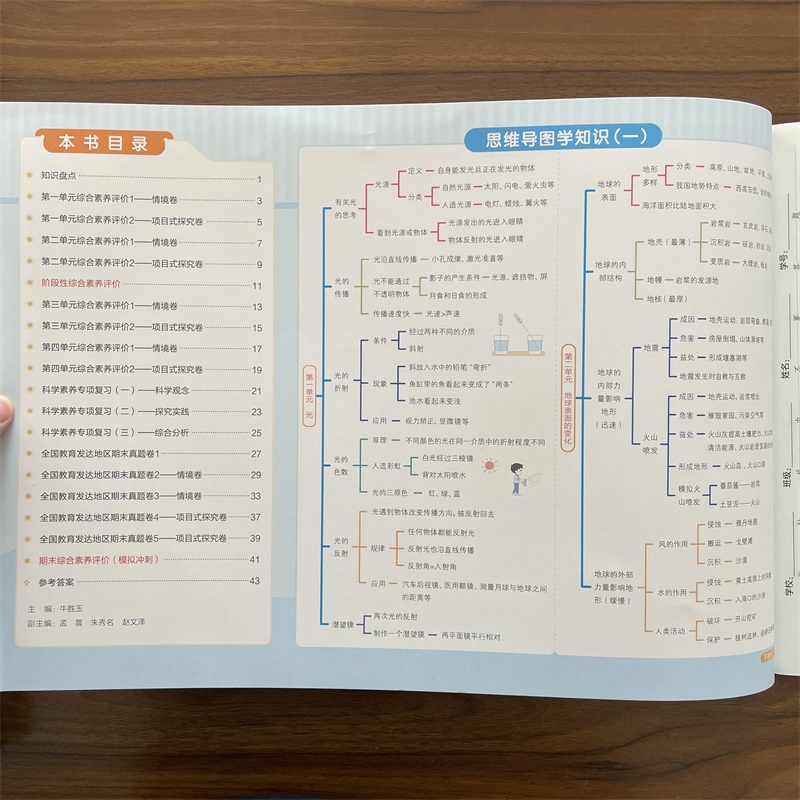 本书目录
知识盘点 1
第一单元综合素养评价1——情境卷 3
第一单元综合素养评价2——项目式探究卷 5
第二单元综合素养评价1——情境卷 7
第二单元综合素养评价2——项目式探究卷 9
阶段性综合素养评价 11
第三单元综合素养评价1——情境卷 13
第三单元综合素养评价2——项目式探究卷 15
第四单元综合素养评价1——情境卷 17
第四单元综合素养评价2——项目式探究卷 19
科学素养专项复习（一）——科学观念 21
科学素养专项复习（二）——探究实践 23
科学素养专项复习（三）——综合分析 25
全国教育发达地区期末真题卷1 27
全国教育发达地区期末真题卷2——情境卷 29
全国教育发达地区期末真题卷3——情境卷 33
全国教育发达地区期末真题卷4——项目式探究卷 37
全国教育发达地区期末真题卷5——项目式探究卷 39
期末综合素养评价（模拟冲刺） 41
参考答案 43
主 编：牛胜玉
副主编：孟 晨 朱秀名 赵文泽
思维导图学知识（一）
第一单元 光
有关光的思考
光源
定义 自身能发光且正在发光的物体
分类
自然光源 太阳、闪电、萤火虫等
人造光源 电灯、蜡烛、篝火等
看到光源或物体
光源发出的光进入眼睛
物体反射的光进入眼睛
光的传播
光沿直线传播 小孔成像、激光准直等
光不能通过不透明物体
影子的产生条件 光源、遮挡物、屏
月食和日食的形成
传播速度快 光速>声速
光的折射
条件
经过两种不同的介质
斜射
现象
斜放入水中的铅笔“弯折”
鱼缸里的鱼看起来变成了“两条”
池水看起来变浅
应用 视力矫正、显微镜等
光的色散
原理 不同颜色的光在同一介质中的折射程度不同
人造彩虹
白光经过三棱镜
背对太阳喷水
光的三原色 红、绿、蓝
光的反射
光遇到物体改变传播方向，被反射回去
规律
任何物体都能反射光
反射光也沿直线传播
反射角=入射角
应用 汽车后视镜、医用额镜、测量月球与地球之间的距离等
潜望镜
两次光的反射
制作一个潜望镜 两平面镜平行相对
第二单元 地球表面的变化
地球的表面
地形多样
分类 高原、山地、盆地、平原
我国地势特点 西高东低
海洋面积比陆地面积大
地球的内部结构
地壳（最薄）
岩浆岩 玄武岩、浮石
沉积岩 砾岩、砂岩
变质岩 大理岩、板岩
地幔 岩浆的发源地
地核（最厚）
地球的内部力量影响地形（迅速）
地震
成因 地壳运动、岩层弯曲、断裂
危害 房屋倒塌、山体滑坡等
益处 形成堰塞湖等
地震发生时自救与互救
火山喷发
成因 地壳运动、岩浆喷出
危害 摧毁家园、污染空气等
益处 火山灰提高土壤肥力、火山
清洁能源、火山岩是
形成地形 火山岛、火山口湖
模拟火山喷发
番茄酱——岩浆
土豆泥——火山
地球的外部力量影响地形（缓慢）
风的作用
侵蚀 雅丹地貌
搬运 戈壁滩
沉积 沙漠
水的作用
侵蚀 黄土高原上的
沉积 入海口的沙洲
人类活动
破坏 开山挖矿
保护 植树造林
学号：
姓名：
班级：
学校：